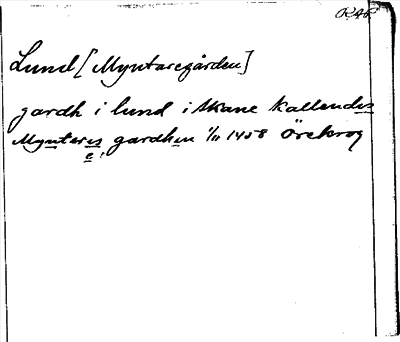 RAP
Lund [Myntaregården]
gardh i lund i skane kallendes
Mynteres gardhen 1/11 1458 Örekrog
e!